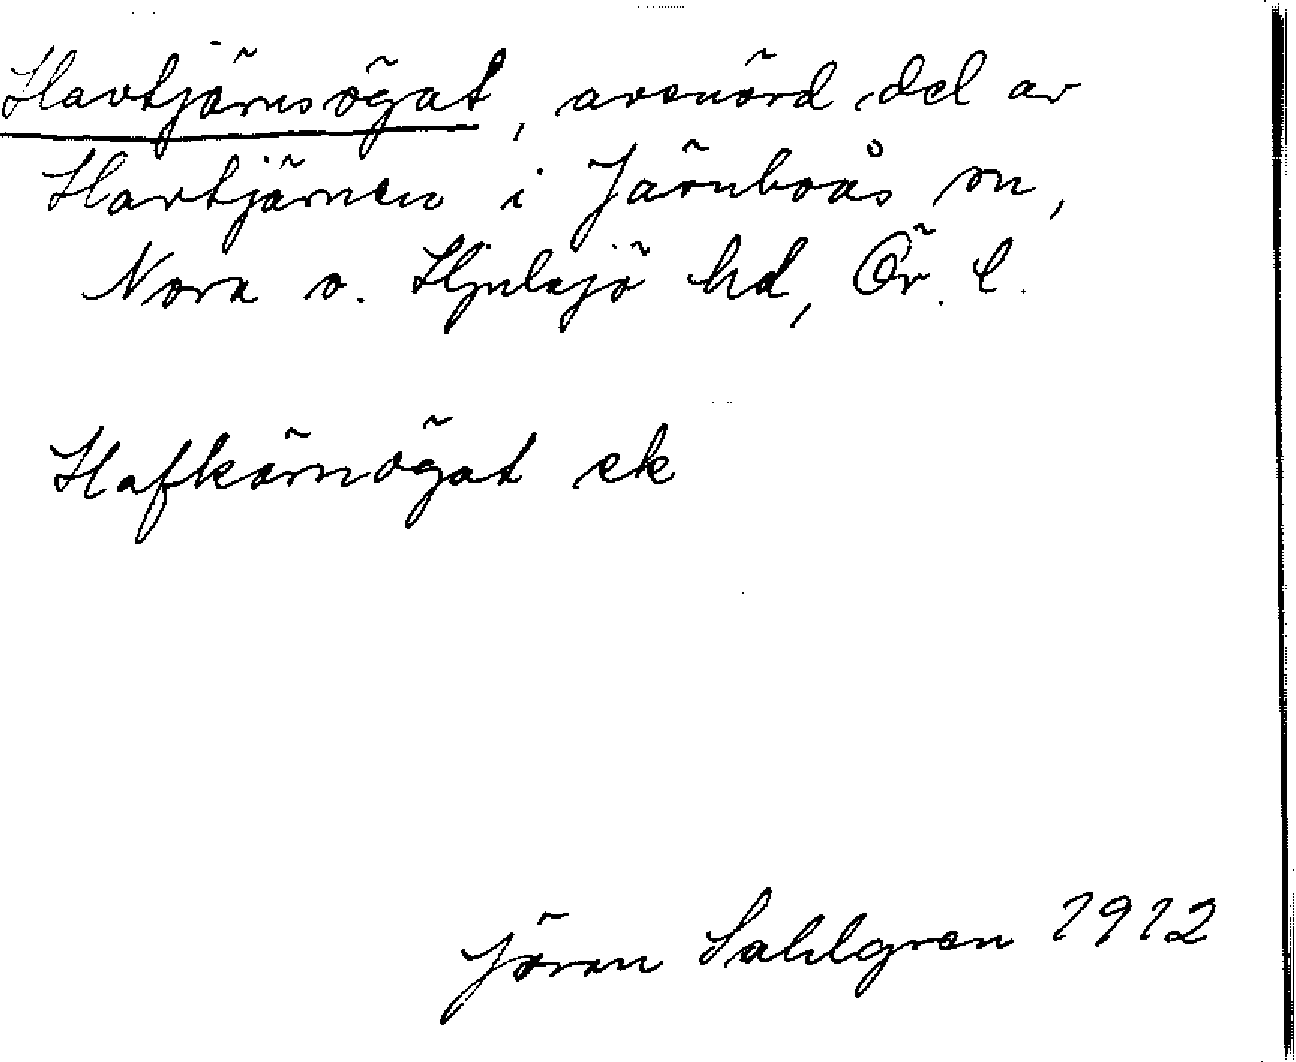 Havtjärnsögat, avsnörd del av
Havtjärnen i Järnboås sn,
Nora o. Hjulsjö hd, Ör. l.
Hafkärnögat ek
Jöran Sahlgren 1912